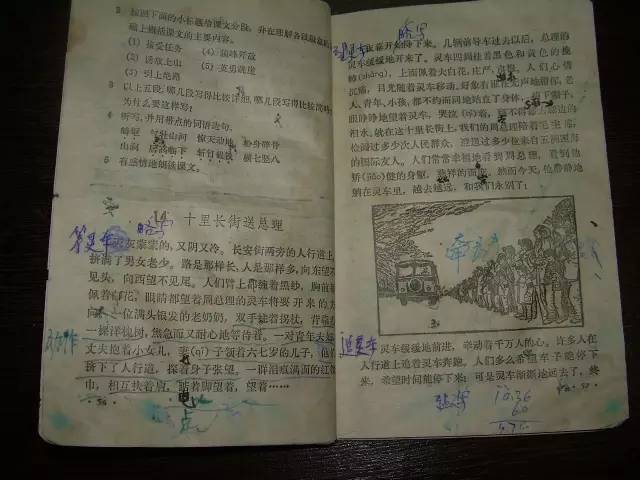 2 按照下面的小标题给课文分段，并在理解各段
础上概括课文的主要内容。
(1) 接受任务 (4) 顶峰歼敌
(2) 诱敌上山 (5) 英勇跳崖
(3) 引上绝路
3 以上五段，哪几段写得比较详细，哪几段写得比较简
为什么要这样写？
4 听写，并用带点的词语造句。
山涧 居高临下 斩钉截铁 横七竖八
5 有感情地朗读课文。
14 十里长街送总理
灰蒙蒙的，又阴又冷。长安街两旁的人行道上
挤满了男女老少。路是那样长，人是那样多，向东望不
见头，向西望不见尾。人们臂上都缠着黑纱，胸前都
佩着白花，眼睛都望着周总理的灵车将要开来的方
一位满头银发的老奶奶，双手拄着拐杖，背靠着
一棵洋槐树，焦急而又耐心地等待着。一对青年夫妇，
丈夫抱着小女儿，妻(qī)子领着六七岁的儿子，他们
挤下了人行道，探着身子张望。一群泪痕满面的红领
巾，相互扶着肩，踮着脚望着，望着……
· 56 ·
夜幕开始降下来。几辆前导车过去以后，总理的
灵车缓缓地开来了。灵车四周挂着黑色和黄色的挽
幛(zhàng)，上面佩着大白花，庄严，肃穆。人们心情
沉痛，目光随着灵车移动。好象有谁在无声地指挥，老
人、青年、小孩，都不约而同地站直了身体，摘下帽子，
眼睁睁地望着灵车，哭泣(qì)着，顾不得擦去腮边的
泪水。就在这十里长街上，我们的周总理陪着毛主席，
检阅过多少次人民群众，迎送过多少位来自五洲四海
的国际友人。人们常常幸福地看到周总理，看到他
矫(jiǎo)健的身躯，慈祥的面庞。然而今天，他静静地
躺在灵车里，越去越远，和我们永别了！
灵车缓缓地前进，牵动着千万人的心。许多人在
人行道上追着灵车奔跑。人们多么希望车子能停下
来，希望时间能停下来！可是灵车渐渐地远去了，终
· 57 ·
追灵车